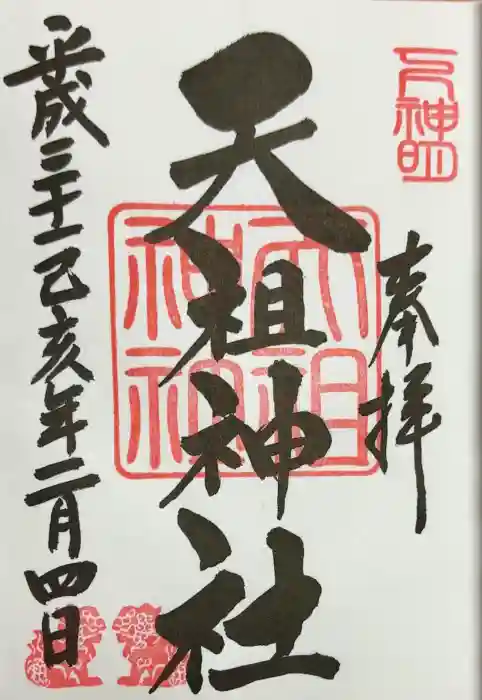 奉拝
天祖神社
平成三十一己亥年二月四日
天祖
神社